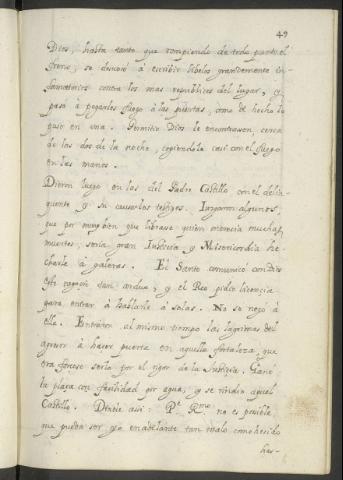 49
Dios, hasta tanto que rompiendo de todo punto el
freno, se descaró á escribir libelos grandemente in-
famatorios contra los mas republicos del lugar, y
pasó à pegarles fuego à las puertas, como de hecho lo
puso en una. Permitio Dios le encontrasen, cerca
de las dos de la noche, cogiendole casi con el fuego
en las manos.
Dieron luego en las del Padre Castillo con el delin-
quente y su causa los testigos. Juzgaron algunos,
que por muy bien que librase quien merecia muchas
muertes, seria gran Justicia y Misericordia he-
charle à galeras. El Santo comunicó con Dios
este negocio tan arduo, y el Reo pidio licencia
para entrar à hablarle à solas. No se negó à
ella. Entraron al mismo tiempo las lagrimas del
à hacer puerta en aquella fortaleza, que
era forcoso seria por el rigor de la Justicia. Ganó
la plaza con facilidad por agua, y se rindio aquel
Castillo. Dixole assi: Pe. Rmo. no es posible
que pueda ser yo en adelante tan malo como he sido
has-